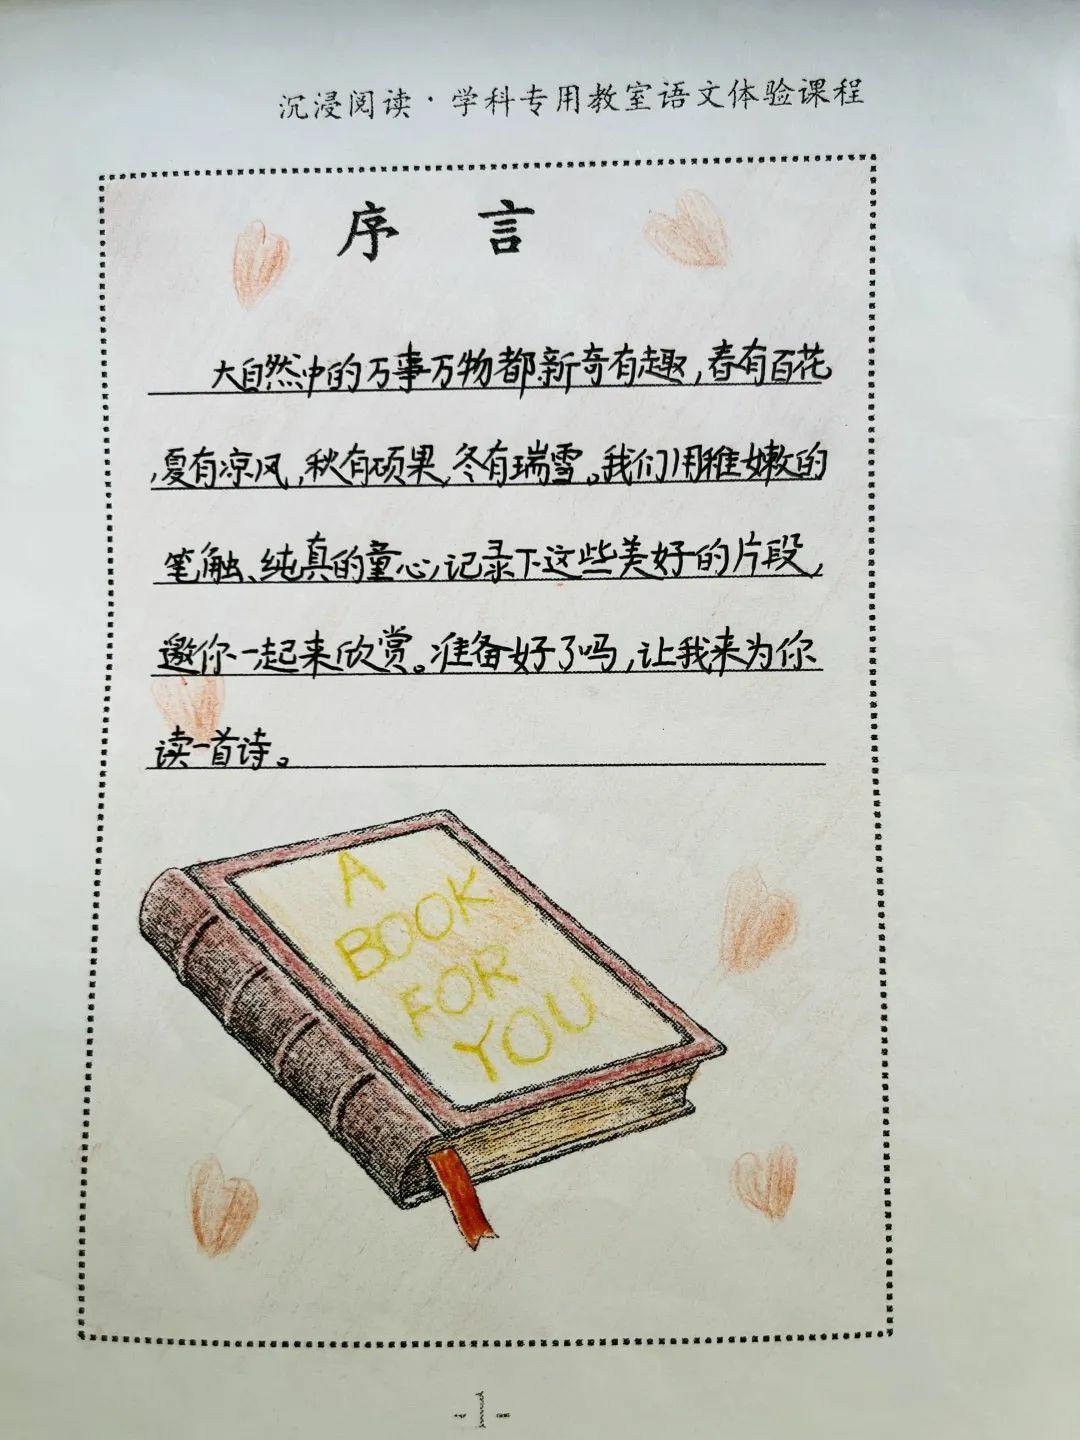 沉浸阅读·学科专用教室语文体验课程
序 言
大自然中的万事万物都新奇有趣,春有百花
,夏有凉风,秋有硕果,冬有瑞雪。我们用稚嫩的
笔触、纯真的童心,记录下这些美好的片段,
邀你一起来欣赏。准备好了吗,让我来为你
读一首诗。
A
BOOK
FOR
YOU
-1-